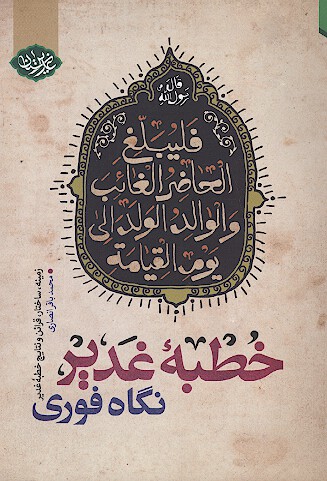 قال
رسول الله
فليبلغ
الحاضر الغائب
والوالد الولد إلى
يوم القيامة
خطبهٔ غدیر
نگاه فوری
زمینه، ساختار، قرائن و نتایج خطبه غدیر
محمدباقر انصاری